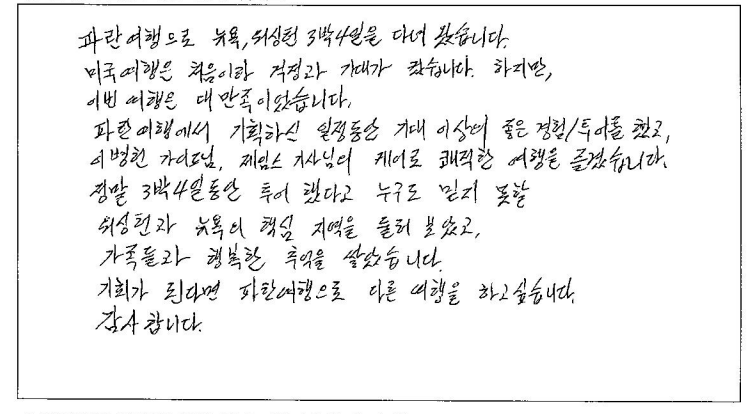 파란여행으로 뉴욕, 워싱턴 3박4일을 다녀 왔습니다.
미국여행은 처음이라 걱정과 기대가 컸습니다. 하지만,
이번 여행은 대 만족이었습니다.
파란여행에서 기획하신 일정동안 기대 이상의 좋은 경험/투어를 했고,
이병헌 가이드님, 제임스 기사님의 케어로 쾌적한 여행을 즐겼습니다.
정말 3박4일동안 투어 했다고 누구도 믿지 못할
워싱턴과 뉴욕의 핵심 지역을 둘러 보았고,
가족들과 행복한 추억을 쌓았습니다.
기회가 된다면 파란여행으로 다른 여행을 하고싶습니다.
감사합니다.